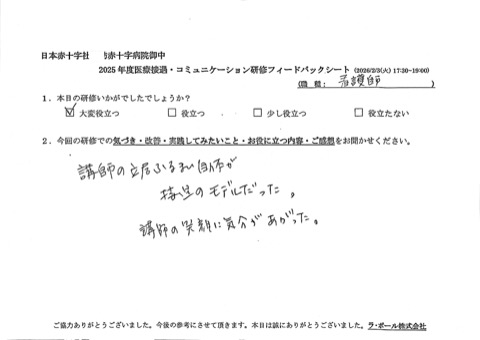 日本赤十字社 赤十字病院御中
2025年度医療接遇・コミュニケーション研修フィードバックシート (2026/2/3(火) 17:30-19:00)
(職 種: 看護師 )
1.本日の研修いかがでしたでしょうか?
☑ 大変役立つ □ 役立つ □ 少し役立つ □ 役立たない
2.今回の研修での気づき・改善・実践してみたいこと・お役に立つ内容・ご感想をお聞かせください。
講師の立居ふるまい自体が
接遇のモデルだった。
講師の笑顔に気分があがった。
ご協力ありがとうございました。今後の参考にさせて頂きます。本日は誠にありがとうございました。ラ・ポール株式会社